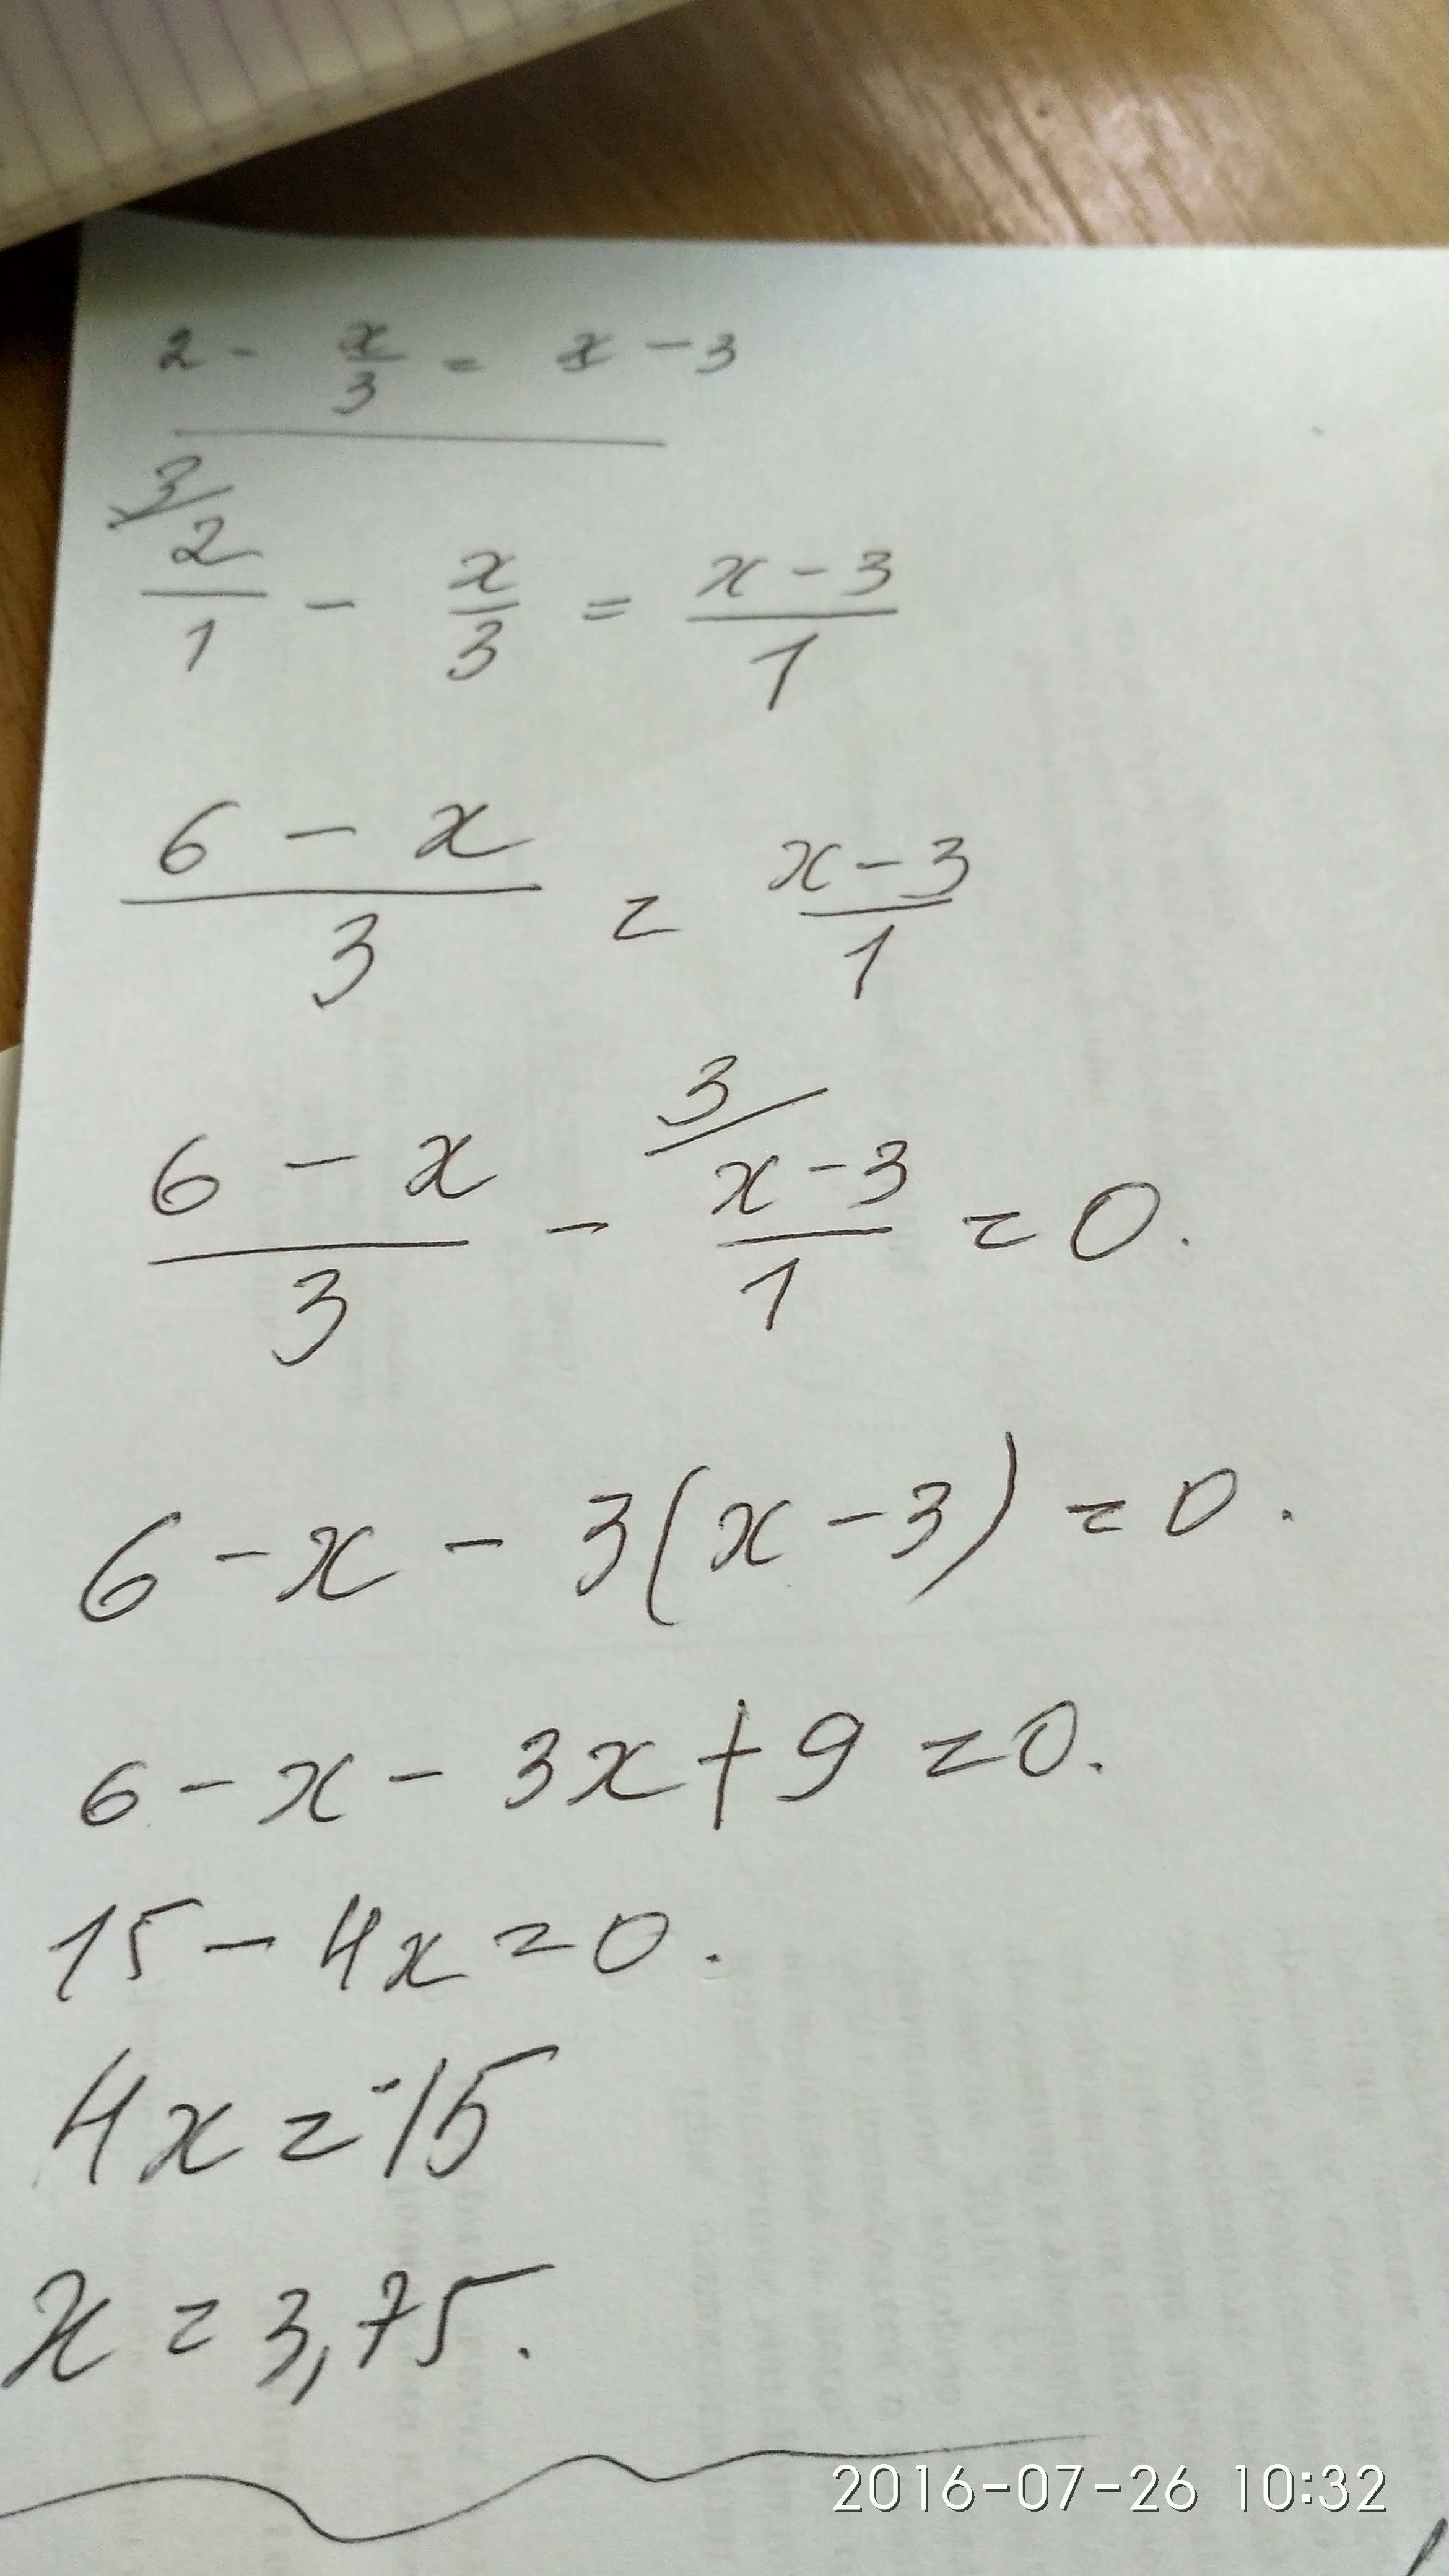 2 - x/3 = x - 3
3/
2/1 - x/3 = (x - 3)/1
(6 - x)/3 = (x - 3)/1
3/
(6 - x)/3 - (x - 3)/1 = 0.
6 - x - 3(x - 3) = 0.
6 - x - 3x + 9 = 0.
15 - 4x = 0.
4x = -15
x = 3,75.
2016-07-26 10:32